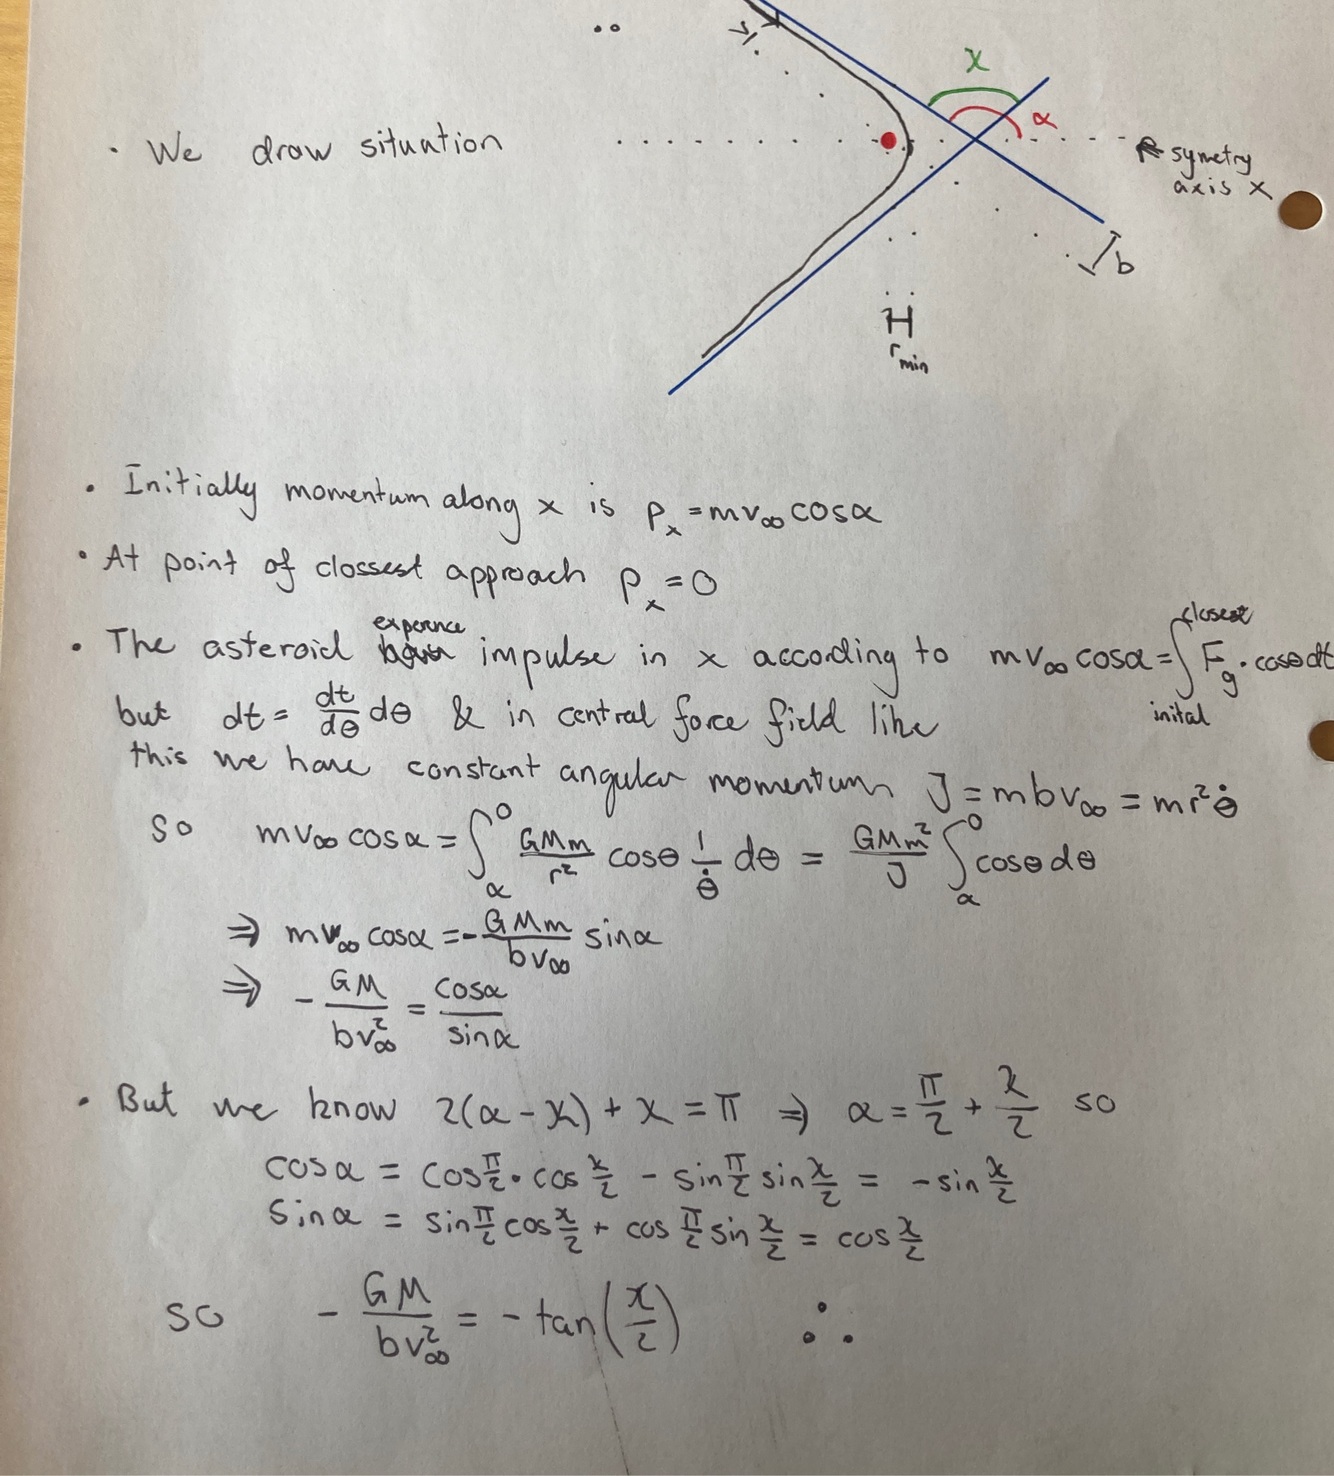 χ
α
• We draw situation
symetry
axis x
b
r_min
• Initially momentum along x is p_x = mv_∞ cosα
• At point of clossest approach p_x = 0
• The asteroid experence impulse in x according to mv_∞ cosα = ∫_inital^closest F_g · cosθ dt
but dt = dt/dθ dθ & in central force field like
this we have constant angular momentum J = mbv_∞ = mr²θ̇
so mv_∞ cosα = ∫_α^0 GMm/r² cosθ 1/θ̇ dθ = GMm²/J ∫_α^0 cosθdθ
⇒ mv_∞ cosα = - GMm/bv_∞ sinα
⇒ - GM/bv_∞² = cosα/sinα
• But we know 2(α - χ) + χ = π ⇒ α = π/2 + χ/2 so
cosα = cos π/2 · cos χ/2 - sin π/2 sin χ/2 = - sin χ/2
sinα = sin π/2 cos χ/2 + cos π/2 sin χ/2 = cos χ/2
so - GM/bv_∞² = - tan(χ/2) ∴